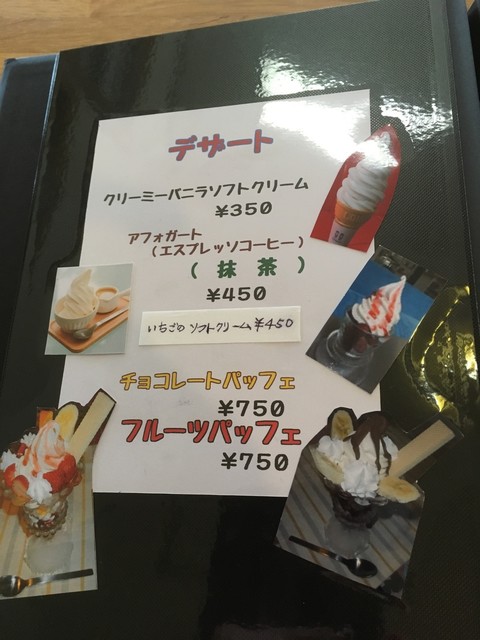 デザート
クリーミーバニラソフトクリーム
¥350
アフォガート
(エスプレッソコーヒー)
( 抹 茶 )
¥450
いちごの ソフトクリーム ¥450
チョコレートパッフェ
¥750
フルーツパッフェ
¥750